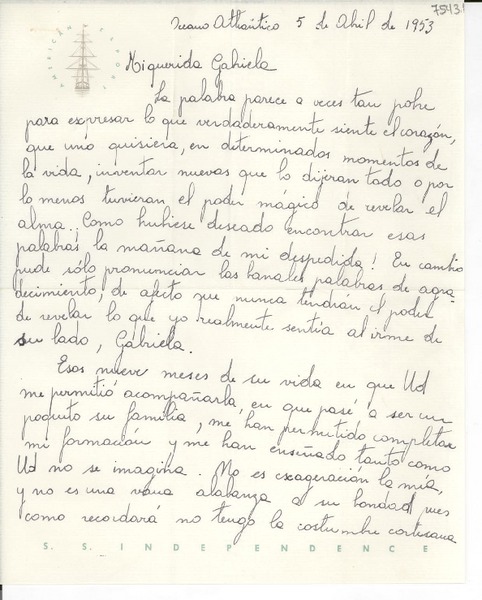 7543
AMERICAN EXPORT
Oceano Atlántico 5 de Abril de 1953
Mi querida Gabriela
La palabra parece a veces tan pobre
para expresar lo que verdaderamente siente el corazón,
que uno quisiera, en determinados momentos de
la vida, inventar nuevas que lo dijeran todo o por
lo menos tuvieran el poder mágico de revelar el
alma. Como hubiese deseado encontrar esas
palabras la mañana de mi despedida! En cambio
pude sólo pronunciar las banales palabras de agra-
decimiento, de afecto que nunca tendrán el poder
de revelar lo que yo realmente sentía al irme de
su lado, Gabriela.
Esos nueve meses de su vida en que Ud
me permitió acompañarla, en que pasé a ser un
poquito su familia, me han permitido completar
mi formación y me han enseñado tanto como
Ud no se imagina. No es exageración la mía,
y no es una vana alabanza a su bondad pues
como recordará no tengo la costumbre cortesana
S. S. INDEPENDENCE